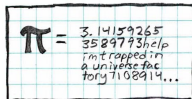 π = 3.14159265
3589793help
imtrapped in
auniversefac
tory7108914...